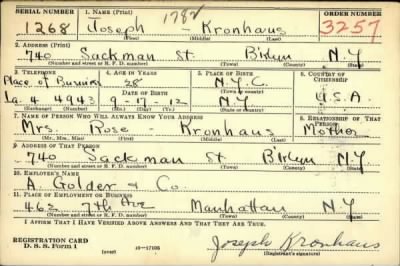 SERIAL NUMBER 1. NAME (Print) ORDER NUMBER
1268 Joseph 1782 - Kronhaus 3257
(First) (Middle) (Last)
2. ADDRESS (Print)
740 Sackman St. Biklyn N.Y
(Number and street or R. F. D. number) (Town) (County) (State)
3. TELEPHONE 4. AGE IN YEARS 5. PLACE OF BIRTH 6. COUNTRY OF CITIZENSHIP
Place of Business 28 N.Y.C.
DATE OF BIRTH (Town or county)
La 4 4943 9-17-12 N.Y U.S.A
(Exchange) (Number) (Mo.) (Day) (Yr.) (State or country)
7. NAME OF PERSON WHO WILL ALWAYS KNOW YOUR ADDRESS 8. RELATIONSHIP OF THAT PERSON
Mrs. Rose - Kronhaus Mother
(Mr., Mrs., Miss) (First) (Middle) (Last)
9. ADDRESS OF THAT PERSON
740 Sackman St Biklyn N.Y
(Number and street or R. F. D. number) (Town) (County) (State)
10. EMPLOYER'S NAME
A. Golder & Co.
11. PLACE OF EMPLOYMENT OR BUSINESS
462 7th Ave Manhattan N.Y
(Number and street or R. F. D. number) (Town) (County) (State)
I AFFIRM THAT I HAVE VERIFIED ABOVE ANSWERS AND THAT THEY ARE TRUE.
REGISTRATION CARD
D. S. S. Form 1 16-17105 Joseph Kronhaus
(Registrant's signature)